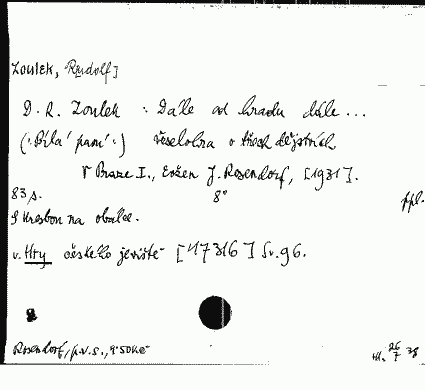 Zoulek, Rudolf]
D. R. Zoulek : Dále od hradu dále ...
(:Bílá paní:) veselohra o třech dějstvích
V Praze I., Evžen J. Rosendorf, [1931].
83 s. 8° ppl.
S kresbou na obálce.
v. Hry českého jeviště [47316] Sv. 96.
Rosendorf, p.v.s., 9.50 Kč
26 7 38